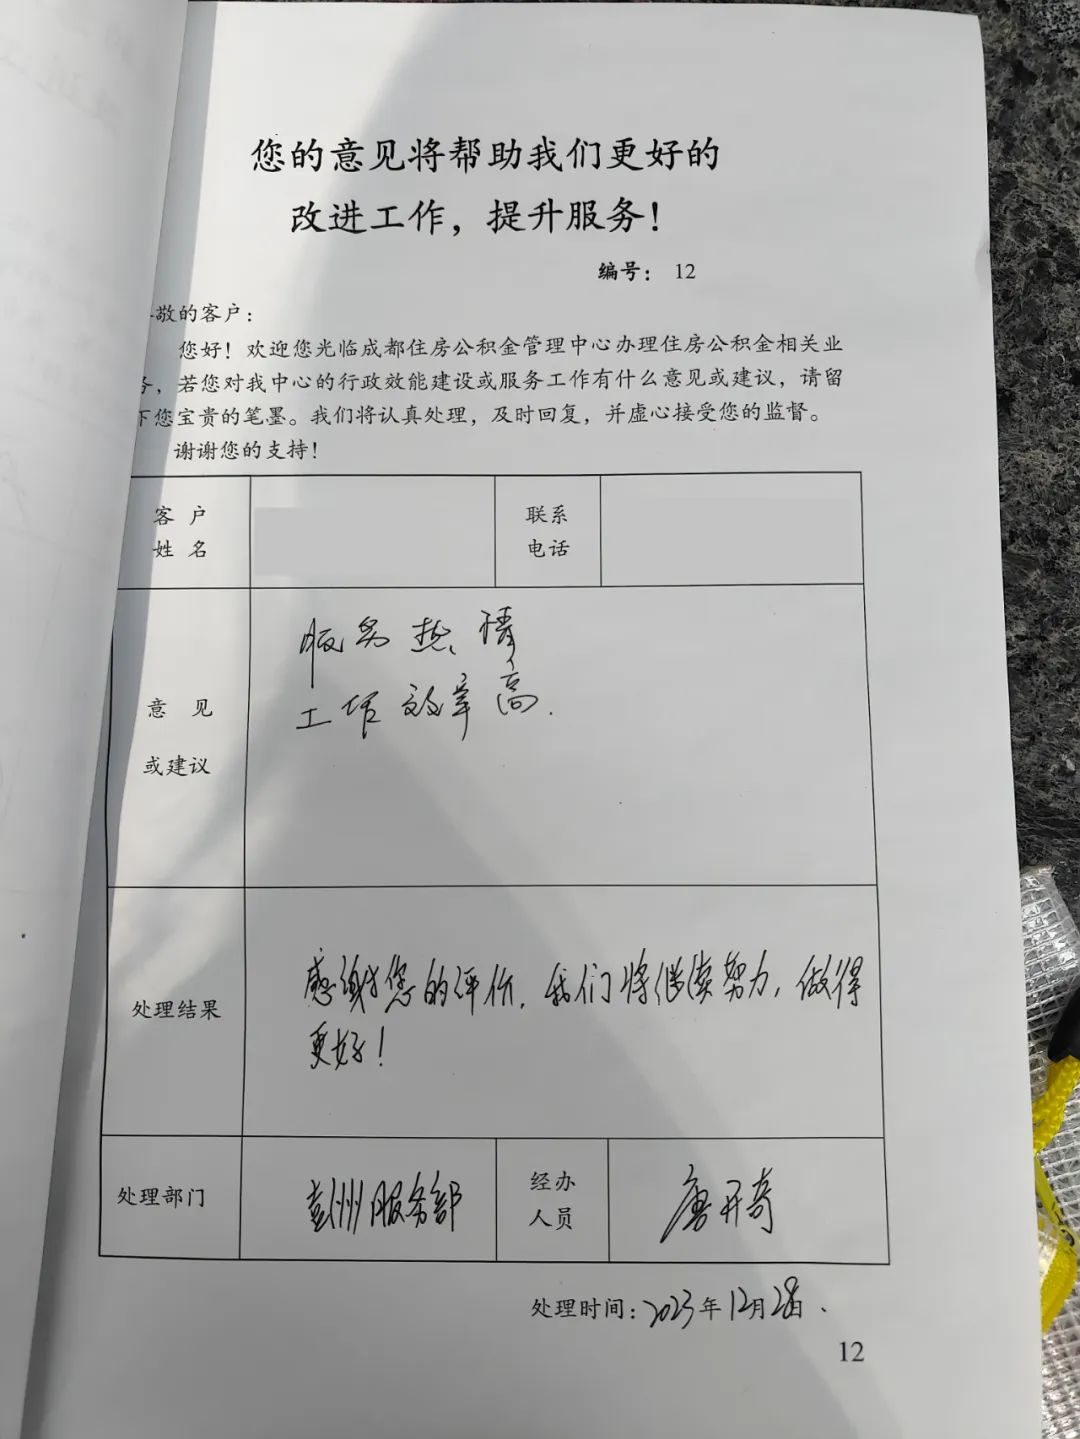 您的意见将帮助我们更好的
改进工作，提升服务！
编号： 12
敬的客户：
您好！欢迎您光临成都住房公积金管理中心办理住房公积金相关业
务，若您对我中心的行政效能建设或服务工作有什么意见或建议，请留
下您宝贵的笔墨。我们将认真处理，及时回复，并虚心接受您的监督。
谢谢您的支持！
客 户
姓 名
联系
电话
意 见
或建议
服务热情
工作效率高.
处理结果
感谢您的评价，我们将继续努力，做得
更好！
处理部门
彭州服务部
经办
人员
唐开奇
处理时间：2023年12月28日.
12